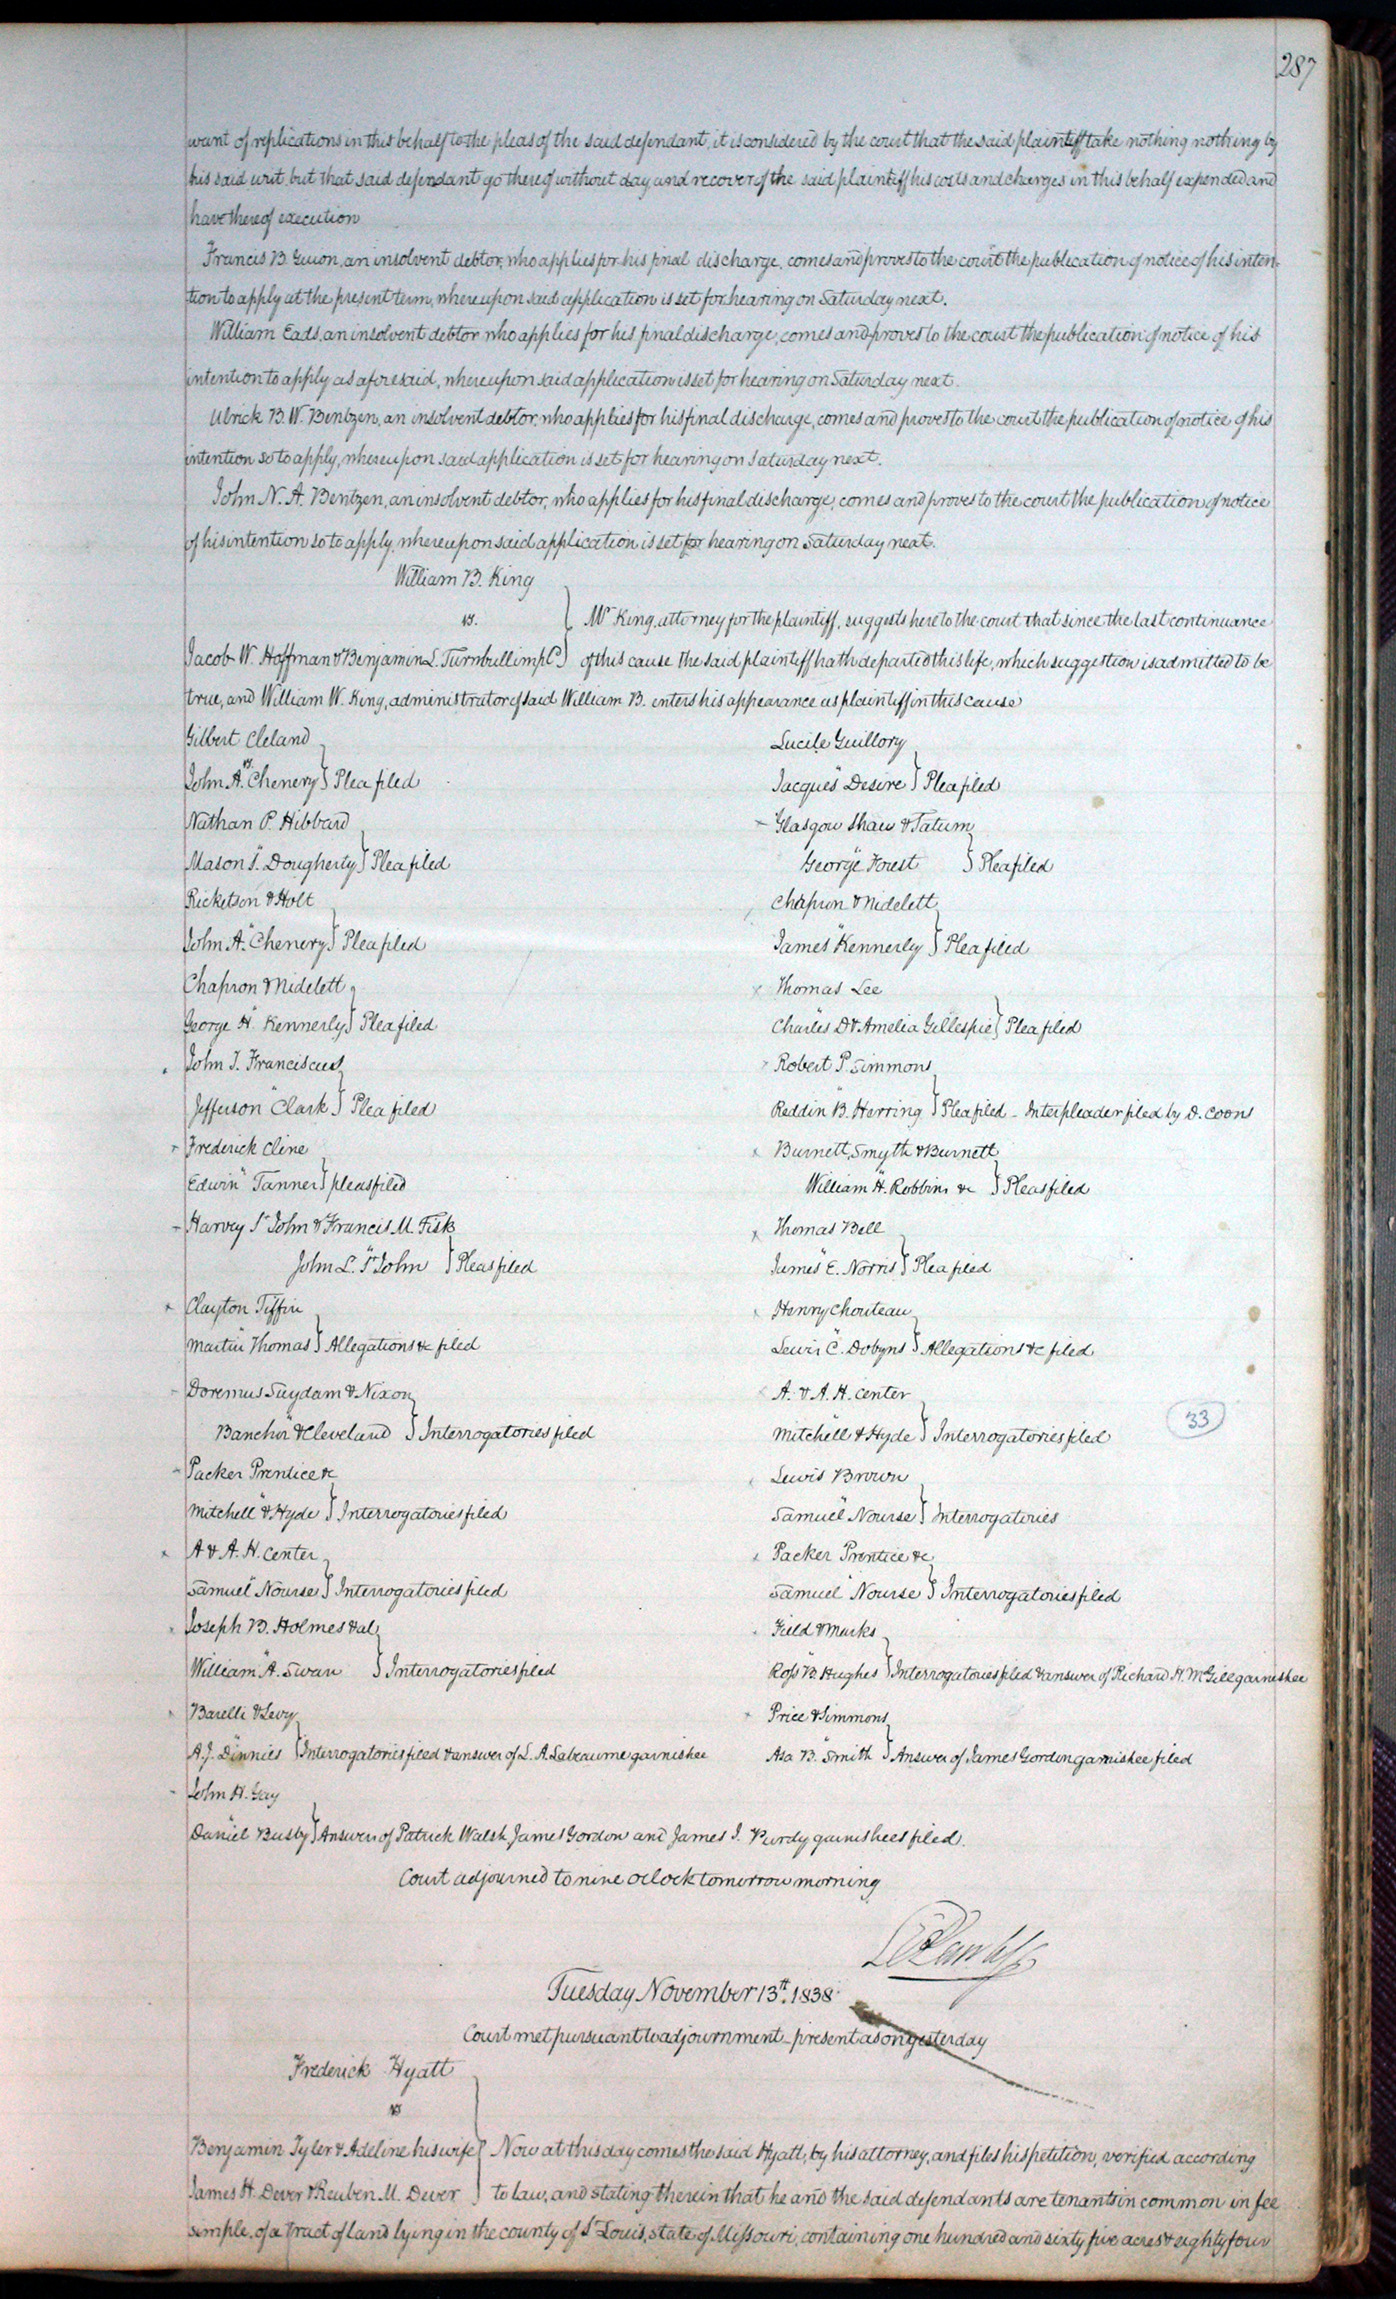 287
want of replications in this behalf to the pleas of the said defendant, it is considered by the court that the said plaintiff take nothing nothing by
his said writ, but that said defendant go thereof without day and recover of the said plaintiff his costs and charges in this behalf expended and
have thereof execution
Francis B. Guion, an insolvent debtor, who applies for his final discharge, comes and proves to the court the publication of notice of his inten-
tion to apply at the present term, whereupon said application is set for hearing on Saturday next.
William Eads, an insolvent debtor who applies for his final discharge, comes and proves to the court the publication of notice of his
intention to apply as aforesaid, whereupon said application is set for hearing on Saturday next.
Ulrick B. W. Bentzen, an insolvent debtor, who applies for his final discharge, comes and proves to the court the publication of notice of his
intention so to apply, whereupon said application is set for hearing on Saturday next.
John N. A. Bentzen, an insolvent debtor, who applies for his final discharge, comes and proves to the court the publication of notice
of his intention so to apply, whereupon said application is set for hearing on Saturday next.
William B. King
vs.
Mr King, attorney for the plaintiff, suggests here to the court that since the last continuance
Jacob W. Hoffman & Benjamin L. Turnbull impd of this cause the said plaintiff hath departed this life, which suggestion is admitted to be
true, and William W. King, administrator of said William B. enters his appearance as plaintiff in this cause
Gilbert Cleland
vs
John A. Chenery } Plea filed
Nathan P. Hibbard
"
Mason S. Dougherty } Plea filed
Ricketson & Holt
"
John A. Chenery } Plea filed
Chapron & Nidelett
"
George H. Kennerly } Plea filed
John J. Franciscus
"
Jefferson Clark } Plea filed
Frederick Cline
"
Edwin Tanner } pleas filed
Harvey St John & Francis M. Fisk
"
John L. St John } Pleas filed
Clayton Tiffin
"
Martin Thomas } Allegations &c filed
Doremus Suydam & Nixon
"
Bancher & Cleveland } Interrogatories filed
Packer Prentice &c
"
Mitchell & Hyde } Interrogatories filed
A & A. H. Center
"
Samuel Nourse } Interrogatories filed
Joseph B. Holmes & al
"
William A. Swan } Interrogatories filed
Barelli & Levy
"
A. J. Dinnies } Interrogatories filed & answer of L. A. Labeaume garnishee
John H. Gay
"
Daniel Busby } Answers of Patrick Walsh James Gordon and James J. Purdy garnishees filed.
Lucile Guillory
"
Jacques Desire } Plea filed
Glasgow Shaw & Tatum
"
George Forest } Plea filed
Chapron & Nidelett
"
James Kennerly } Plea filed
Thomas Lee
"
Charles D & Amelia Gillespie } Plea filed
Robert P. Simmons
"
Reddin B. Herring } Plea filed - Interpleader filed by D. Coons
Burnett, Smyth & Burnett
"
William H. Robbins &c } Pleas filed
Thomas Bell
"
James E. Norris } Plea filed
Henry Chouteau
"
Lewis C. Dobyns } Allegations &c filed
A. & A. H. Center
"
Mitchell & Hyde } Interrogatories filed
33
Lewis Brown
"
Samuel Nourse } Interrogatories
Packer Prentice &c
"
Samuel Nourse } Interrogatories filed
Field & Marks
"
Ross B. Hughes } Interrogatories filed & answer of Richard H. McGill garnishee
Price & Simmons
"
Asa B. Smith } Answer of James Gordon garnishee filed
Court adjourned to nine oclock tomorrow morning
Tuesday November 13th. 1838
Court met pursuant to adjournment - present as on yesterday
Frederick Hyatt
vs
Benjamin Tyler & Adeline his wife } Now at this day comes the said Hyatt, by his attorney, and files his petition, verified according
James H. Dever & Reuben M. Dever to law, and stating therein that he and the said defendants are tenants in common in fee
simple, of a tract of land lying in the county of St Louis, state of Missouri, containing one hundred and sixty five acres & eighty four